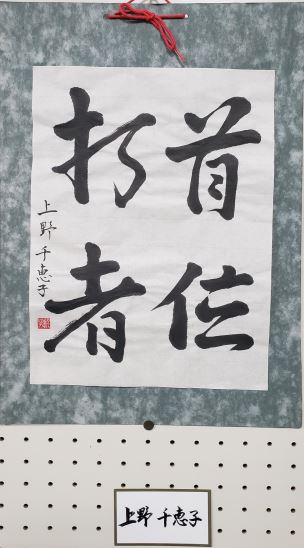 首位
打者
上野千恵子
上野 千恵子